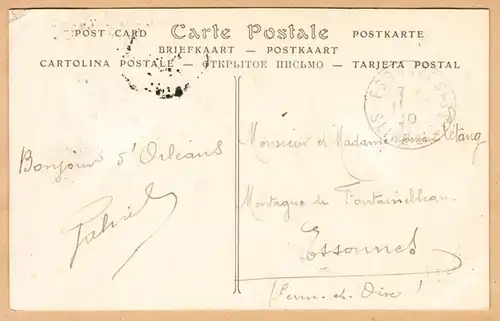 POST CARD Carte Postale POSTKARTE
BRIEFKAART — POSTKAART
CARTOLINA POSTALE — ОТКРЫТОЕ ПИСЬМО — TARJETA POSTAL
Bonjour d'Orléans
Gabriel
Monsieur et Madame Létang
Montagne de Fontainebleau
Essonnes
(Seine-et-Oise)